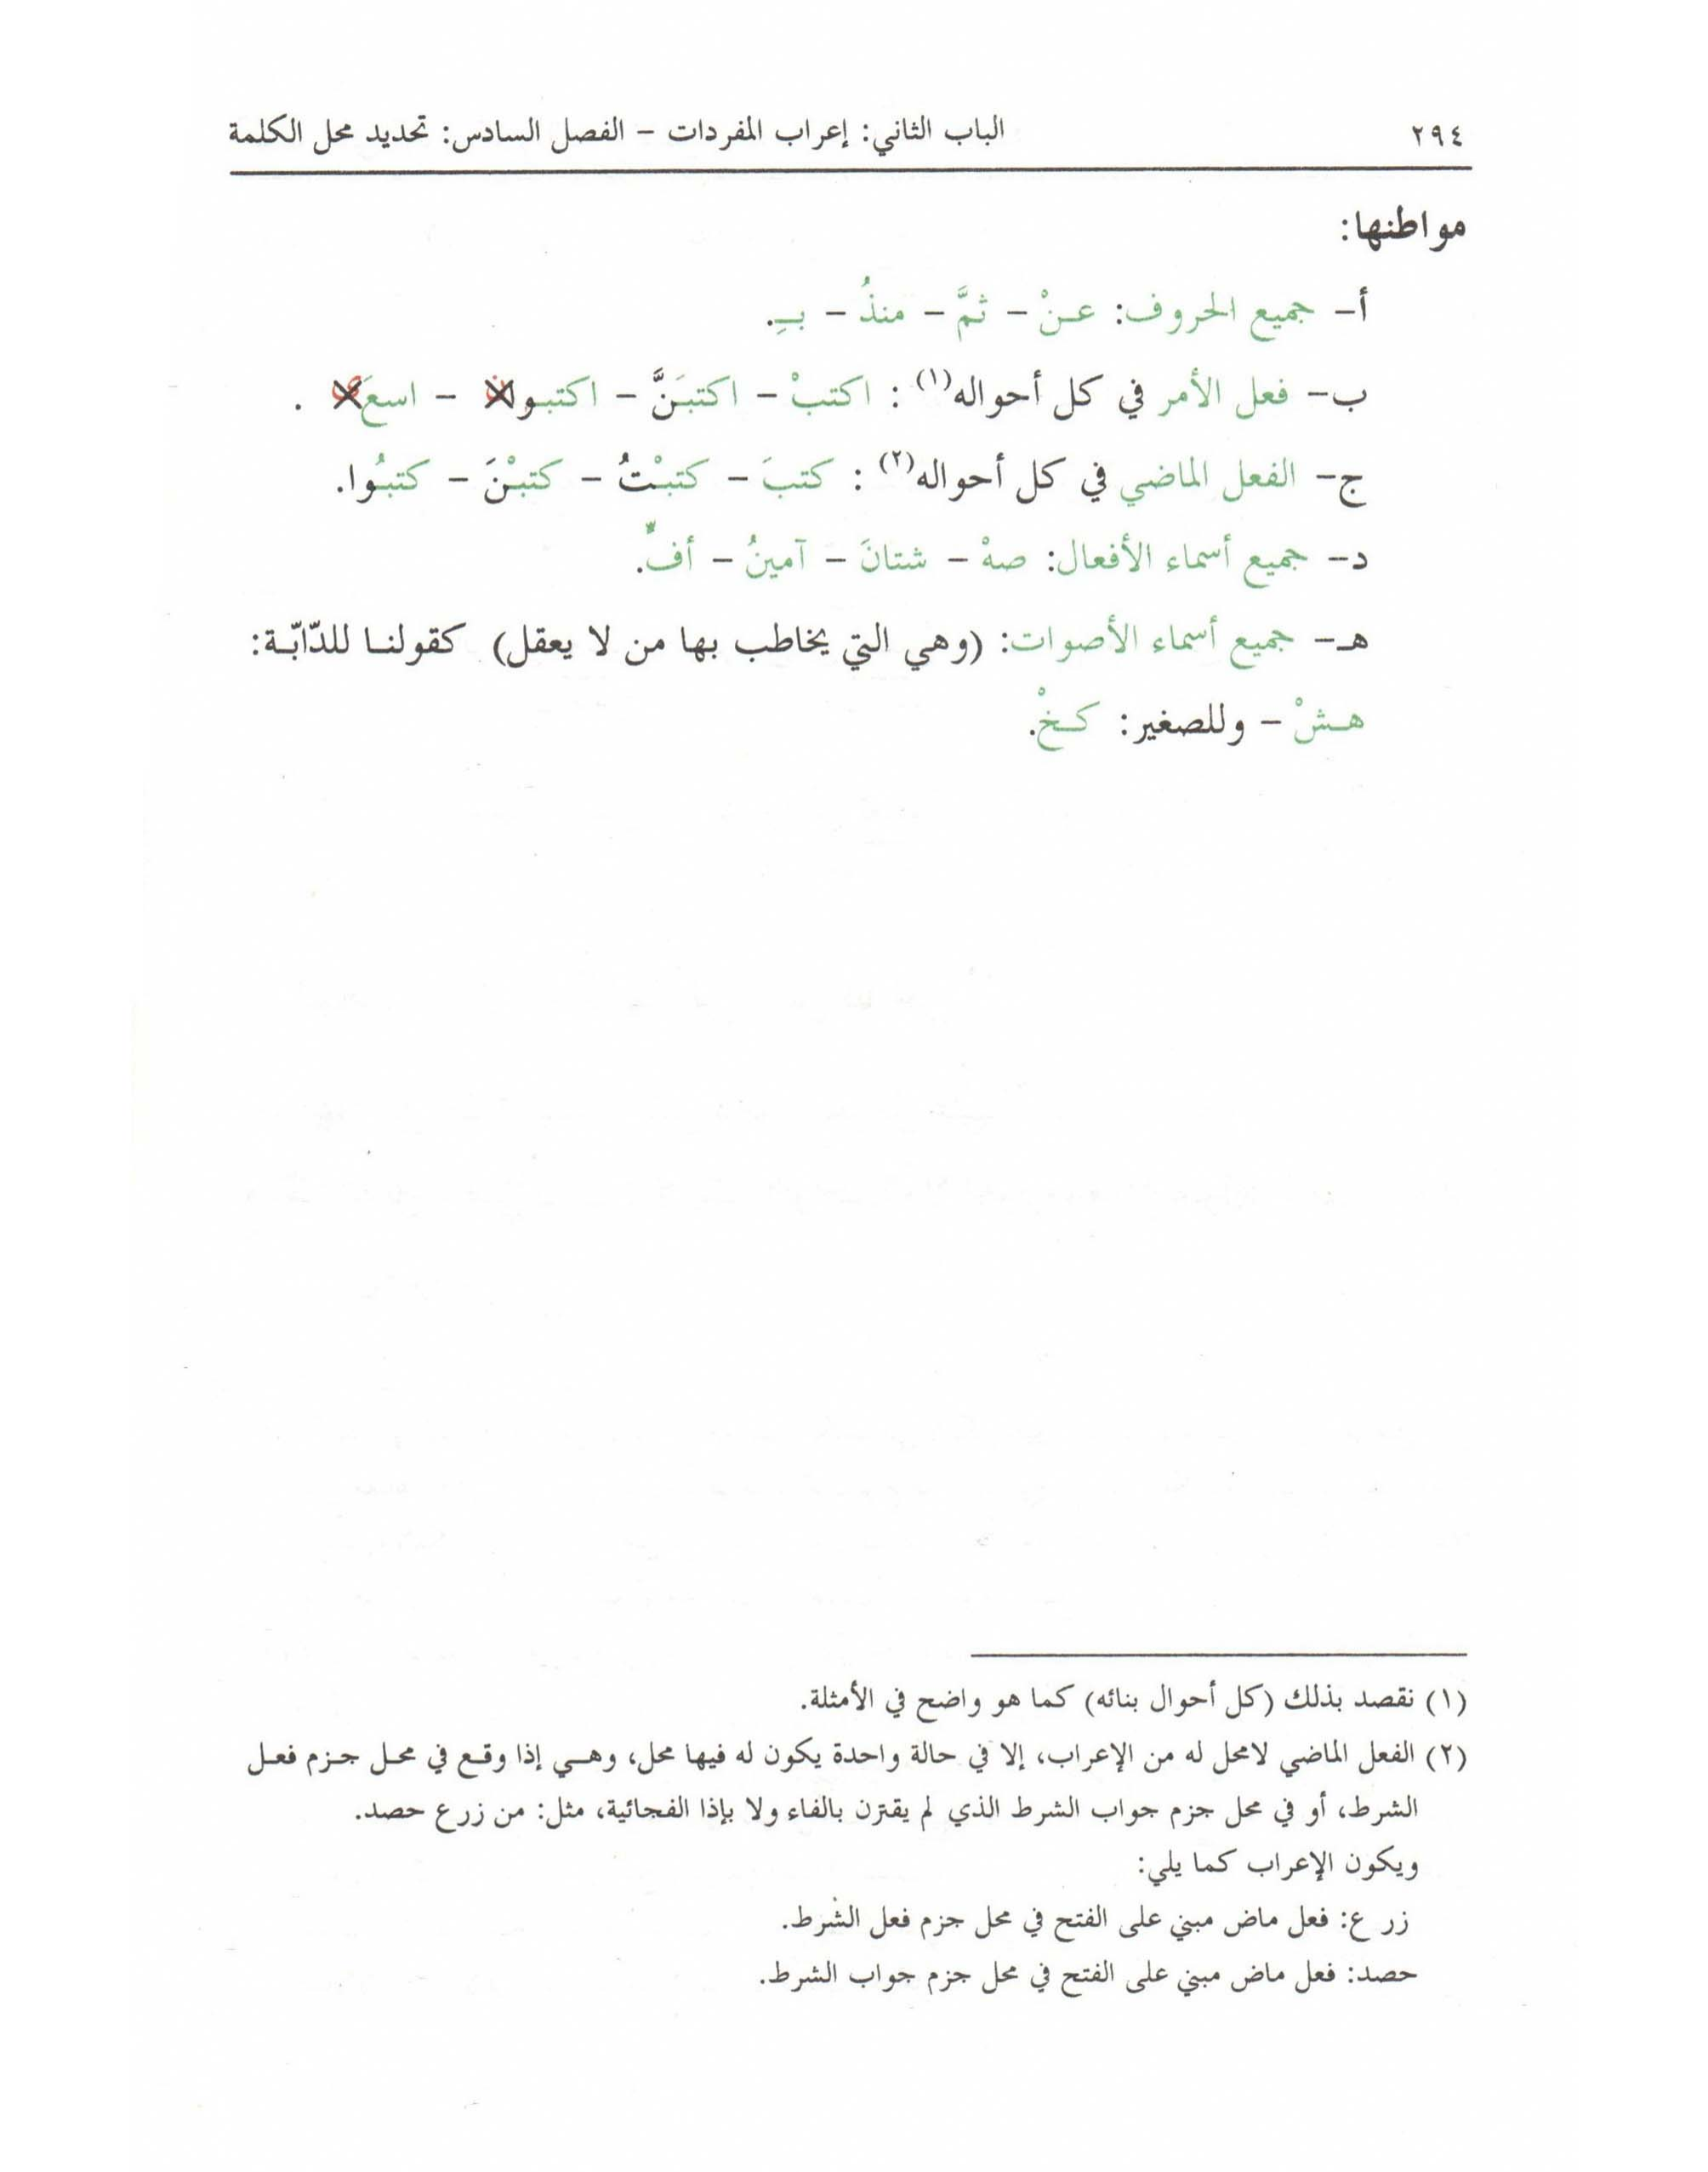 ٢٩٤ الباب الثاني: إعراب المفردات – الفصل السادس: تحديد محل الكلمة
مواطنها:
أ– جميع الحروف: عـنْ – ثمَّ – منذُ – بـِ.
ب– فعل الأمر في كل أحواله(١) : اكتبْ – اكتبَنَّ – اكتبـوا – اسعَ .
ج– الفعل الماضي في كل أحواله(٢) : كتبَ – كتبْتُ – كتبْنَ – كتبُوا.
د– جميع أسماء الأفعال: صهْ – شتانَ – آمينُ – أفٌّ.
هـ– جميع أسماء الأصوات: (وهي التي يخاطب بها من لا يعقل) كقولنـا للدّابّـة:
هـشْ – وللصغير: كـخْ.
(١) نقصد بذلك (كل أحوال بنائه) كما هو واضح في الأمثلة.
(٢) الفعل الماضي لامحل له من الإعراب، إلا في حالة واحدة يكون له فيها محل، وهـي إذا وقـع في محـل جـزم فعـل
الشرط، أو في محل جزم جواب الشرط الذي لم يقترن بالفاء ولا بإذا الفجائية، مثل: من زرع حصد.
ويكون الإعراب كما يلي:
زر ع: فعل ماض مبني على الفتح في محل جزم فعل الشرط.
حصد: فعل ماض مبني على الفتح في محل جزم جواب الشرط.